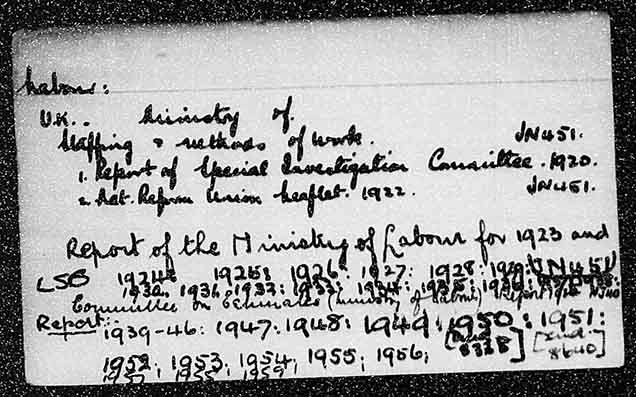 Labour:
U.K. Ministry of
Staffing & methods of work. JN451.
1. Report of Special Investigation Committee. 1920.
2. Nat. Reform Union Leaflet. 1922. JN451.
Report of the Ministry of Labour for 1923 and
LSB 1924: 1925: 1926: 1927: 1928: 1929: JN451
Committee on Estimates (Ministry of Labour) Report
Report: 1939-46: 1947: 1948: 1949: 1950: 1951:
[Cmd 8338] [Cmd 8640]
1952; 1953; 1954; 1955; 1956;
1957, 1958 1959